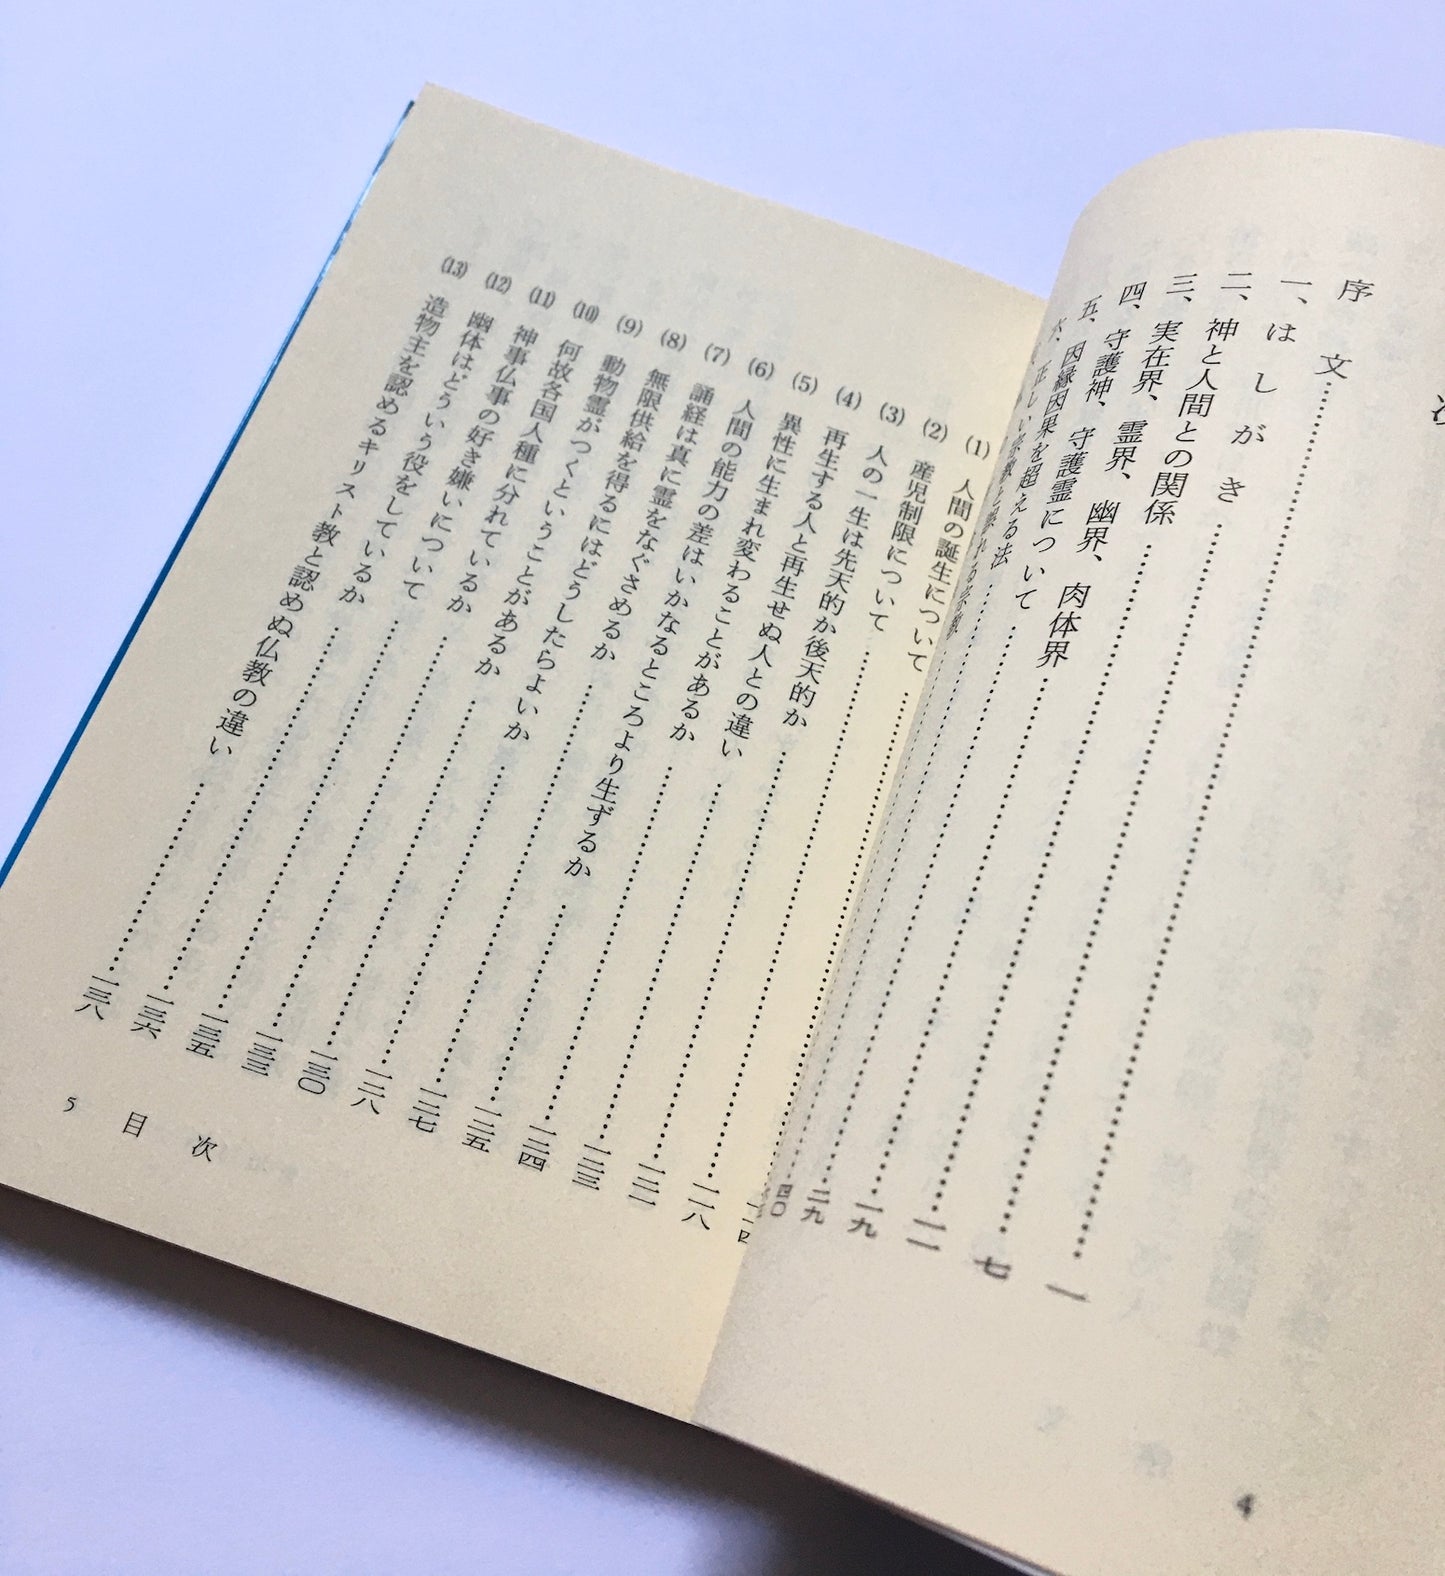 序文……一
一、はしがき……七
二、神と人間との関係……一一
三、実在界、霊界、幽界、肉体界……一九
四、守護神、守護霊について……二九
五、因縁因果を超える法……四〇
六、正しい宗教と
4
(1) 人間の誕生について……
(2) 産児制限について……一一八
(3) 人の一生は先天的か後天的か……一二一
(4) 再生する人と再生せぬ人との違い……一二三
(5) 異性に生まれ変わることがあるか……一二四
(6) 人間の能力の差はいかなるところより生ずるか……一二五
(7) 誦経は真に霊をなぐさめるか……一二七
(8) 無限供給を得るにはどうしたらよいか……一二八
(9) 動物霊がつくということがあるか……一三〇
(10) 何故各国人種に分れているか……一三三
(11) 神事仏事の好き嫌いについて……一三五
(12) 幽体はどういう役をしているか……一三六
(13) 造物主を認めるキリスト教と認めぬ仏教の違い……一三八
5 目次